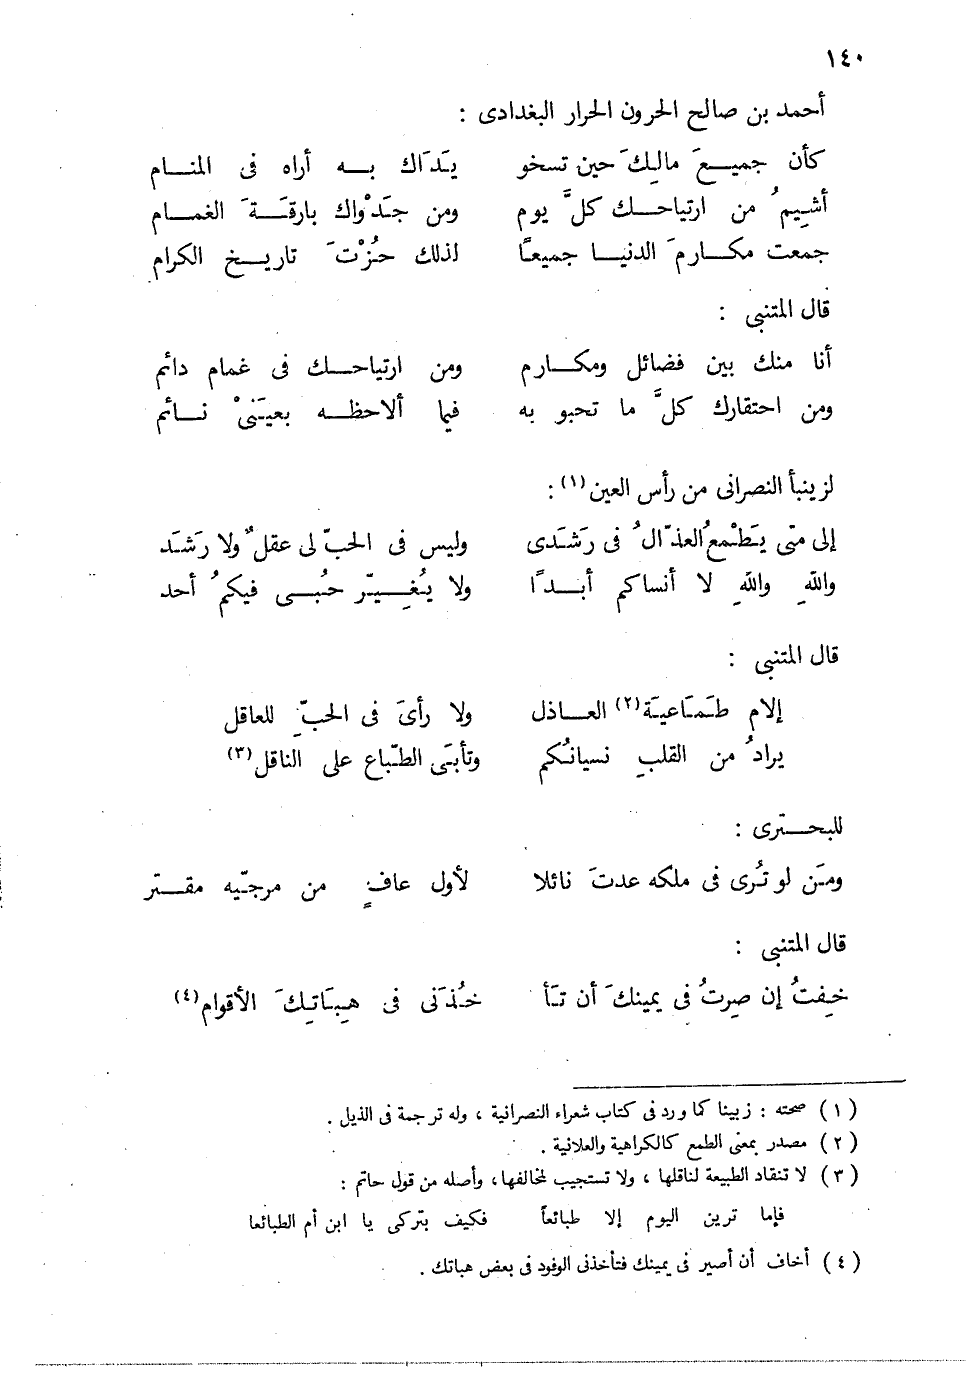 ١٤٠
أحمد بن صالح الحرون الحرار البغدادى :
كأن جميعَ مالِكَ حين تسخو يَدَاك به أراه فى المنام
أشِيمُ من ارتياحك كلَّ يوم ومن جَدْواك بارقَةَ الغمام
جمعت مكارمَ الدنيا جميعًا لذلك حُزْتَ تاريخ الكرام
قال المتنبى :
أنا منك بين فضائل ومكارم ومن ارتياحك فى غمام دائم
ومن احتقارك كلَّ ما تحبو به فيما ألاحظه بعيَنىْ نائم
لزينبأ النصرانى من رأس العين (١) :
إلى متى يَطْمعُ العذّالُ فى رَشَدى وليس فى الحبّ لى عقلٌ ولا رَشَد
واللهِ واللهِ لا أنساكم أبدًا ولا يُغِيّر حُبى فيكمُ أحد
قال المتنبى :
إلام طَمَاعيَة (٢) العاذل ولا رأىَ فى الحبّ للعاقل
يرادُ من القلبِ نسيانُكم وتأبَى الطّباع على الناقل (٣)
للبحترى :
ومَن لو تُرى فى ملكه عدتَ نائلا لأول عافٍ من مرجّيه مقتر
قال المتنبى :
خِفتُ إن صِرتُ فى يمينكَ أن تَأ خُذَنى فى هِبَاتِكَ الأقوام (٤)
(١) صحته : زبينا كما ورد فى كتاب شعراء النصرانية ، وله ترجمة فى الذيل .
(٢) مصدر بمعنى الطمع كالكراهية والعلانية .
(٣) لا تنقاد الطبيعة لناقلها ، ولا تستجيب لمخالفها ، وأصله من قول حاتم :
فإما ترين اليوم إلا طبائعاً فكيف بتركى يا ابن أم الطبائعا
(٤) أخاف أن أصير فى يمينك فتأخذنى الوفود فى بعض هباتك .